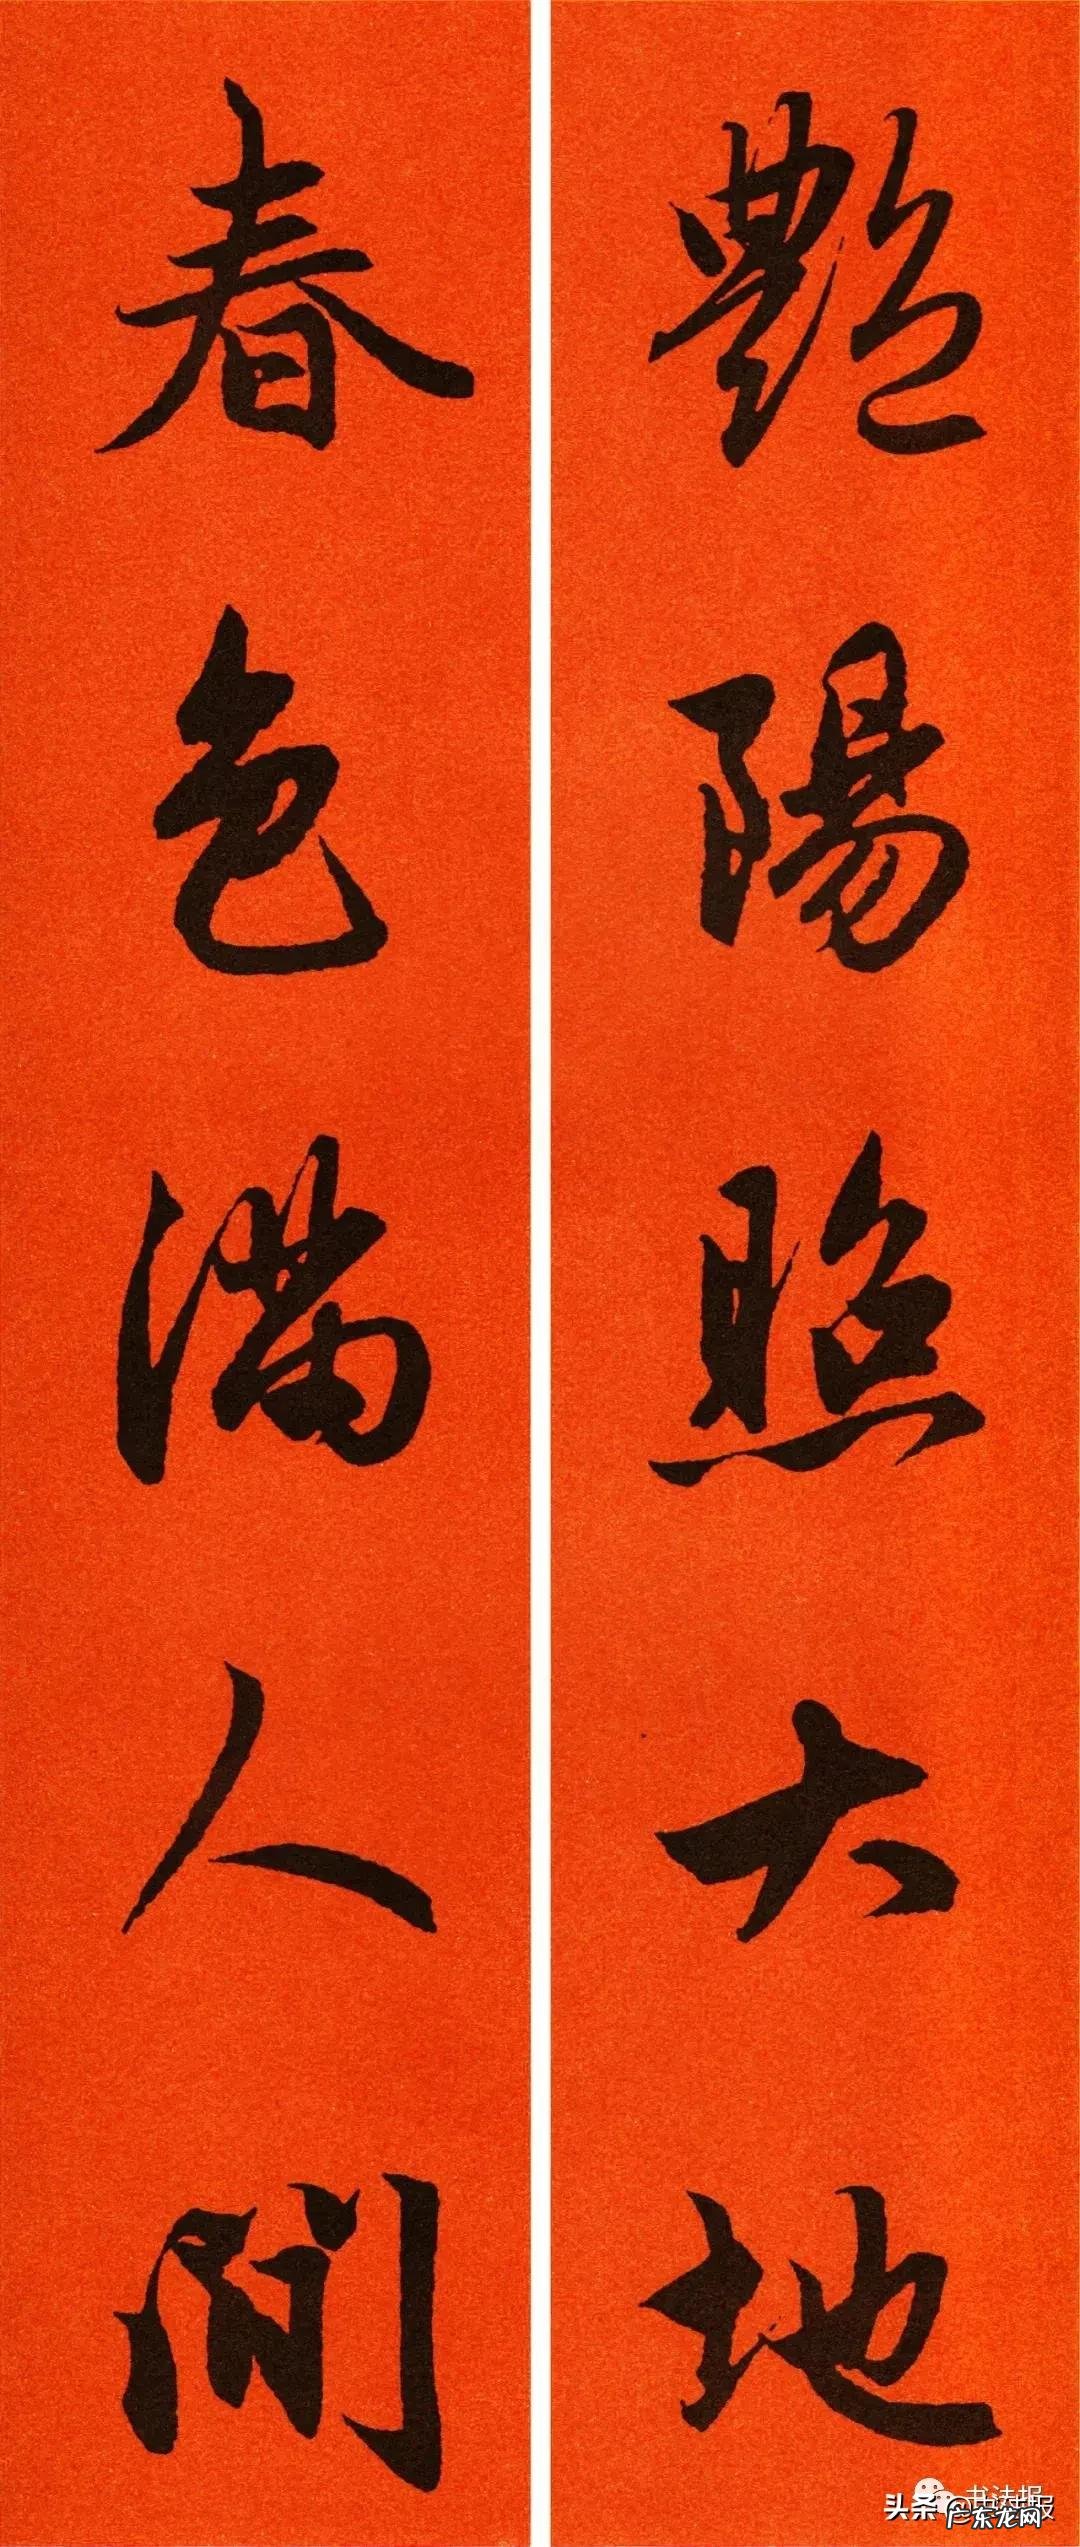 艷陽照大地
春色滿人間
书法报
头条@书法报
广东龙网